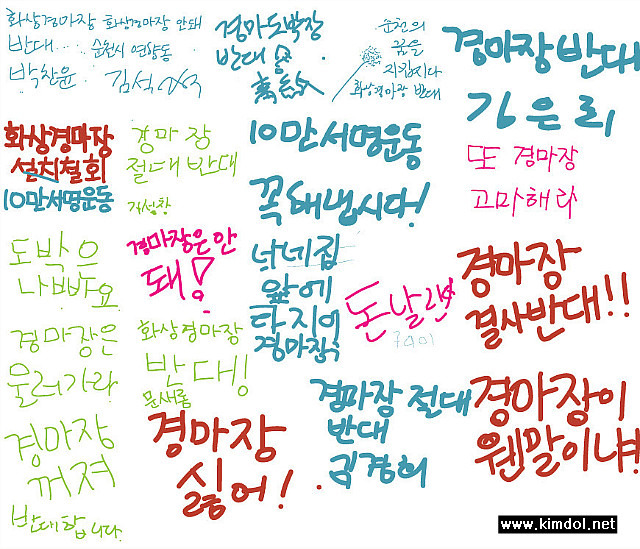 화상경마장
반대...
박창윤
화상경마장 안돼
순천시 연향동
김석
경마도박장
반대
순천의
꿈을
지킵시다
화상경마장 반대
경마장반대
김은희
화상경마장
설치철회
10만서명운동
경마장
절대반대
10만서명운동
꼭해냅시다!
또 경마장
고마해라
도박은
나빠요
경마장은안
돼!
너네집
앞에
다지어
경마장
돈날려
경마장
결사반대!!
경마장은
물러가라
화상경마장
반대!
문새롬
경마장 절대
반대
김경희
경마장이
웬말이냐!
경마장
꺼져
경마장
싫어!
반대합니다.
www.kimdol.net